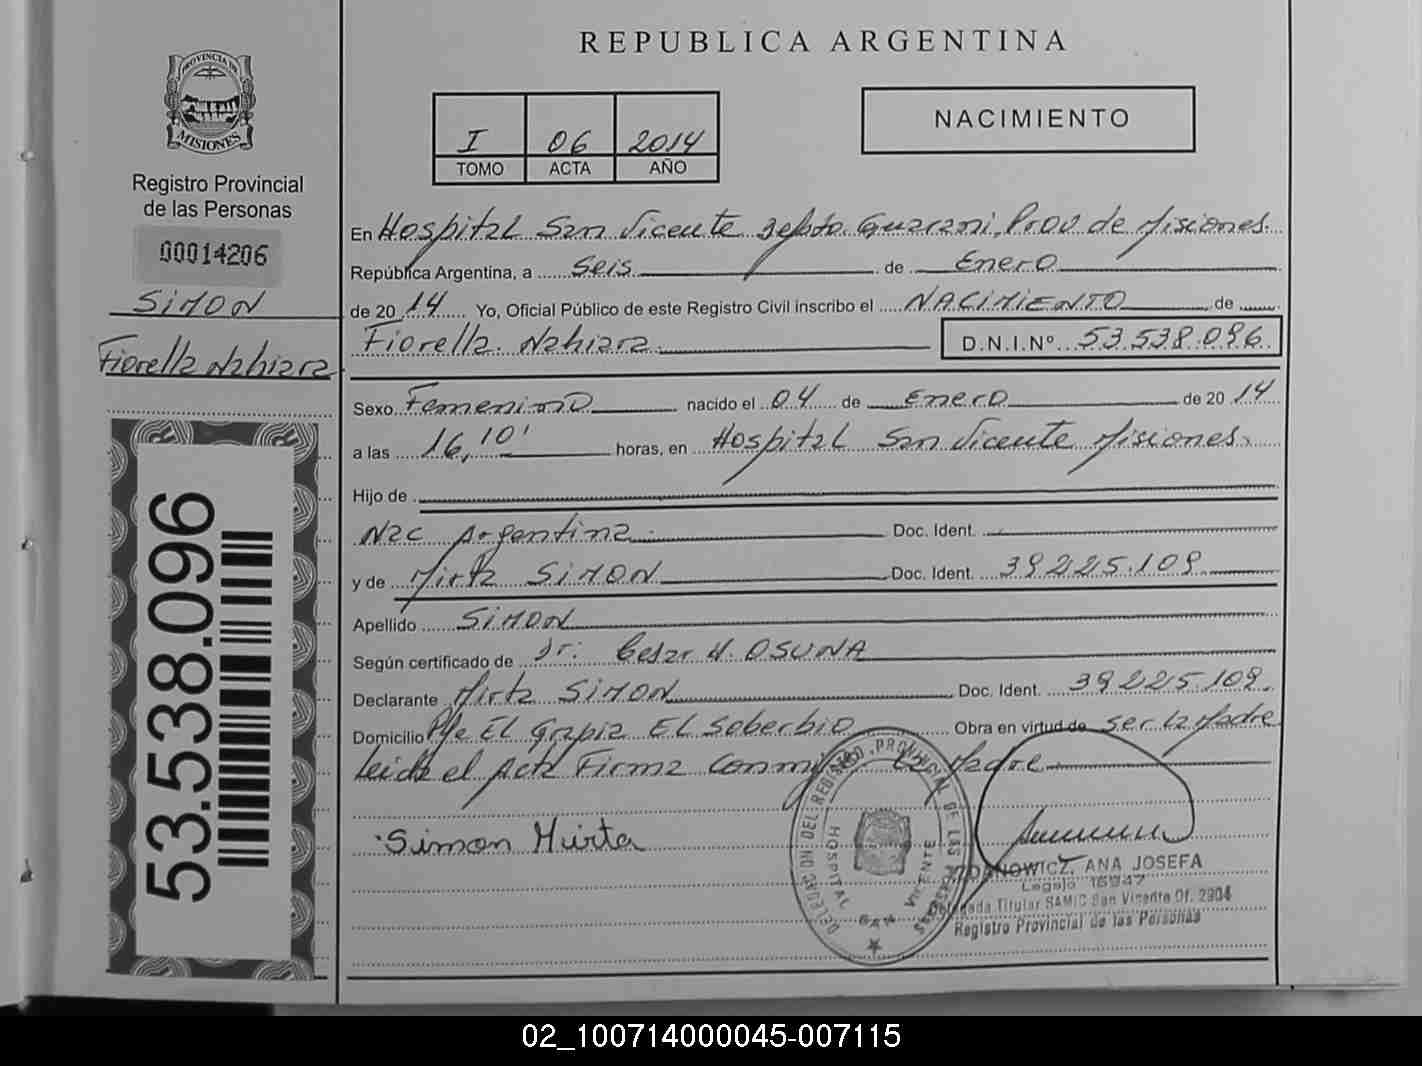 REPUBLICA ARGENTINA
PROVINCIA DE
MISIONES
Registro Provincial
de las Personas
00014206
SIMON
Fiorella Nahiara
53.538.096
I 06 2014
TOMO ACTA AÑO
NACIMIENTO
En Hospital San Vicente Depto. Guarani, Prov de Misiones.
República Argentina, a Seis de Enero
de 20 14 Yo, Oficial Público de este Registro Civil inscribo el NACIMIENTO de
Fiorella Nahiara D.N.I.Nº 53.538.096
Sexo Femenino nacido el 04 de Enero de 20 14
a las 16,10' horas, en Hospital San Vicente Misiones.
Hijo de
Nac Argentina Doc. Ident.
y de Mirta SIMON Doc. Ident. 39225.109
Apellido SIMON
Según certificado de Dr. Cesar N. OSUNA
Declarante Mirta SIMON Doc. Ident. 39225.109.
Domicilio Pje El Grapia El Soberbio Obra en virtud de ser la Madre
Leida el Acta Firma Conmigo la Madre
Simon Mirta
DELEGACION DEL REGISTRO PROVINCIAL DE LAS PERSONAS
HOSPITAL SAN VICENTE
ANA JOSEFA
Legajo 16947
Delegada Titular SAMIC San Vicente Of. 2904
Registro Provincial de las Personas
02_100714000045-007115